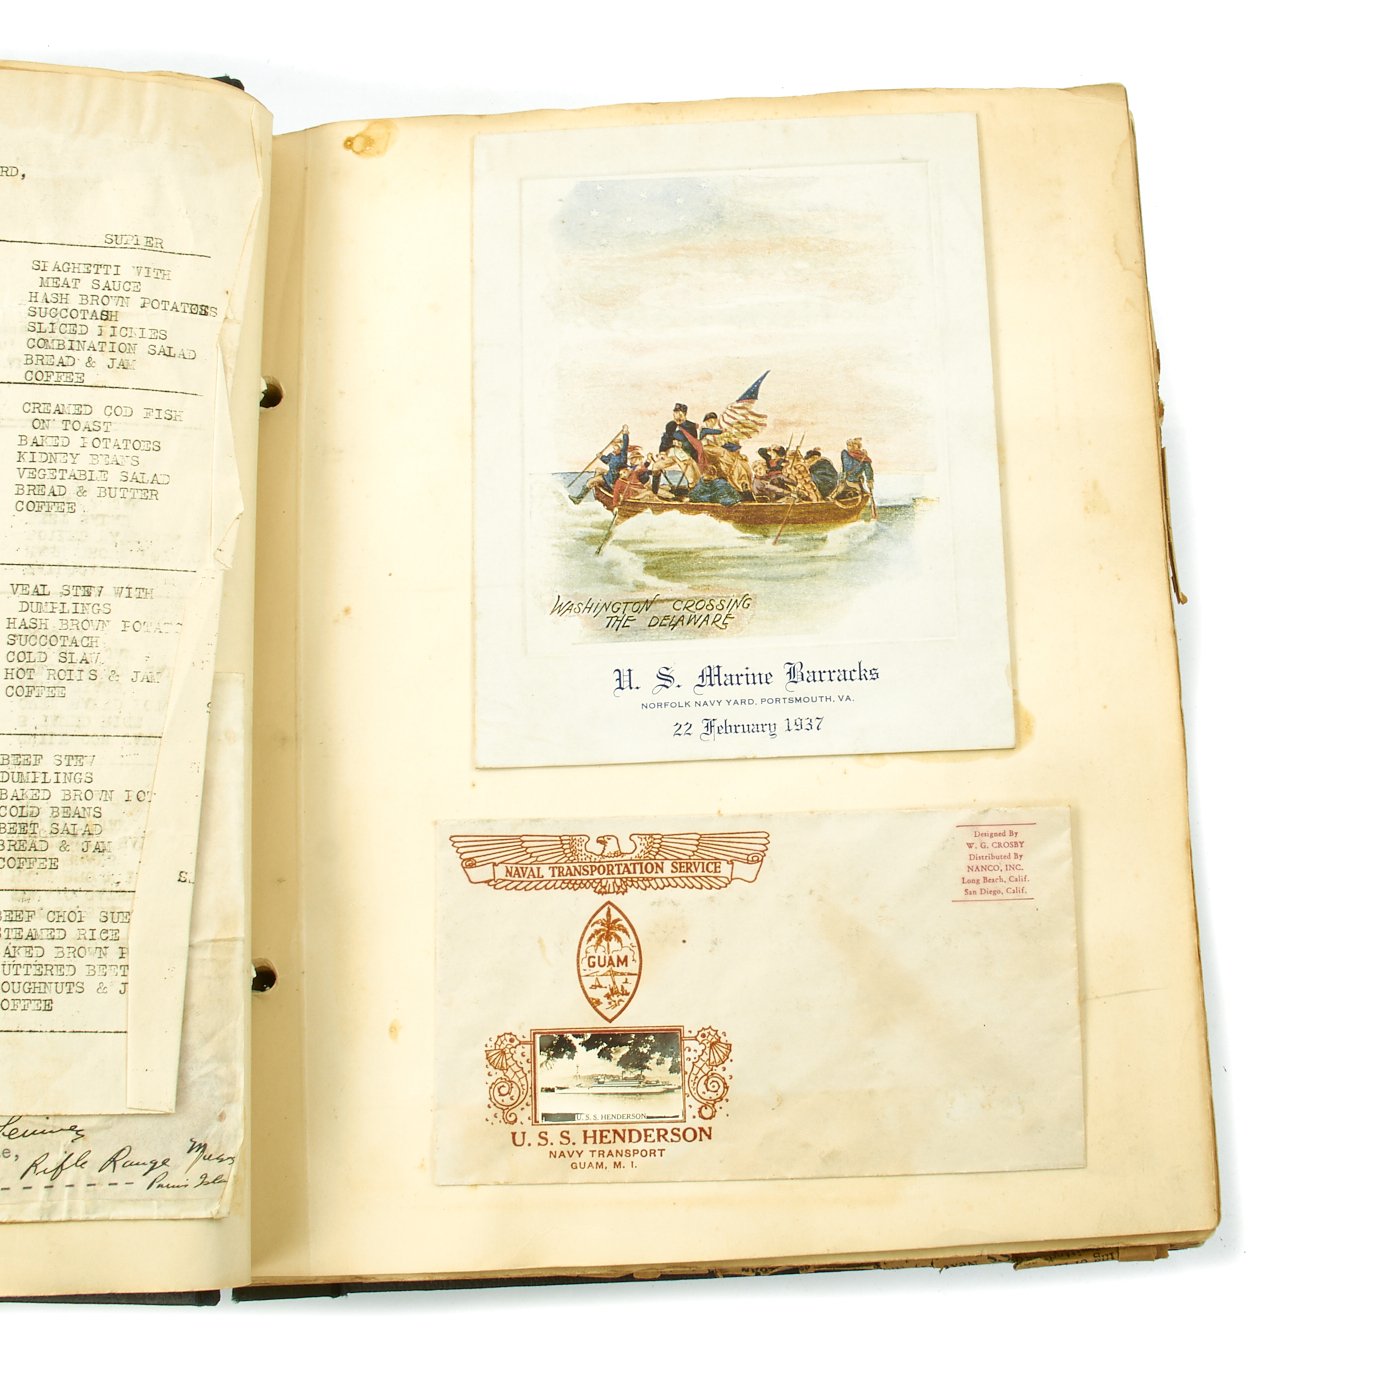 RD,
SUPPER
SPAGHETTI WITH
MEAT SAUCE
HASH BROWN POTATOES
SUCCOTASH
SLICED PICKLES
COMBINATION SALAD
BREAD & JAM
COFFEE
CREAMED COD FISH
ON TOAST
BAKED POTATOES
KIDNEY BEANS
VEGETABLE SALAD
BREAD & BUTTER
COFFEE
VEAL STEW WITH
DUMPLINGS
HASH BROWN POTAT
SUCCOTACH
COLD SLAW
HOT ROLLS & JAM
COFFEE
BEEF STEW
DUMPLINGS
BAKED BROWN POT
COLD BEANS
BEET SALAD
BREAD & JAM
COFFEE
S.
BEEF CHOP SUE
STEAMED RICE
AKED BROWN P
UTTERED BEET
OUGHNUTS & J
OFFEE
e,
Rifle Range
WASHINGTON CROSSING
THE DELAWARE
U. S. Marine Barracks
NORFOLK NAVY YARD, PORTSMOUTH, VA.
22 February 1937
NAVAL TRANSPORTATION SERVICE
GUAM
U. S. S. HENDERSON
U. S. S. HENDERSON
NAVY TRANSPORT
GUAM, M. I.
Designed By
W. G. CROSBY
Distributed By
NANCO, INC.
Long Beach, Calif.
San Diego, Calif.